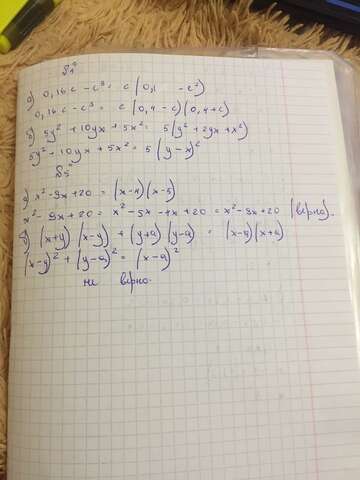 а) 0,16c - c³ = c(0,1 - c²)
0,16c - c³ = c(0,4-c)(0,4+c)
б) 5y² + 10yx + 5x² = 5(y² + 2yx + x²)
5y² + 10yx + 5x² = 5(y - x)²
а) x² - 9x + 20 = (x-4)(x-5)
x² - 9x + 20 = x² - 5x - 4x + 20 = x² - 9x + 20 (верно).
б) (x+y)(x-y) + (y+a)(y-a) = (x-a)(x+a)
(x-y)² + (y-a)² = (x-a)²
не верно.